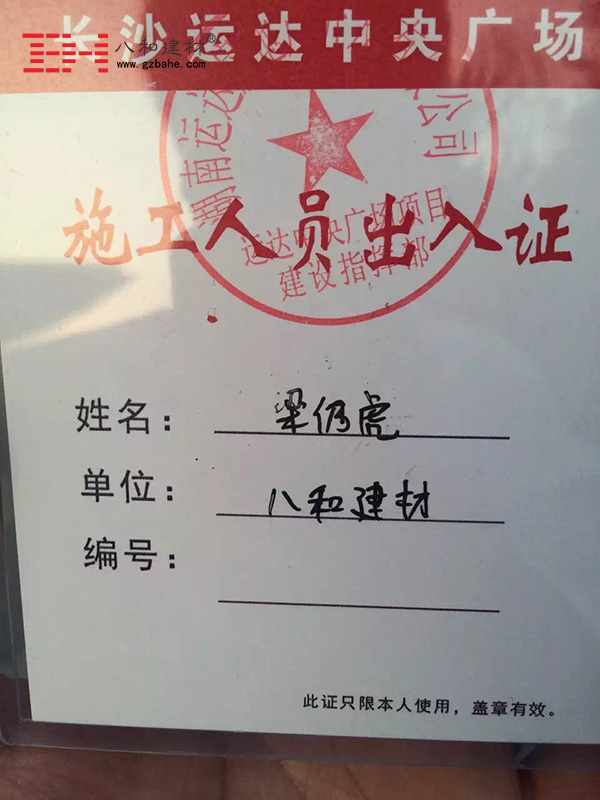 长沙运达中央广场
八和建材®
www.gzbahe.com
湖南运达
公司
施工人员出入证
运达中央广场项目
建设指挥部
姓名：梁仍虎
单位：八和建材
编号：
此证只限本人使用，盖章有效。